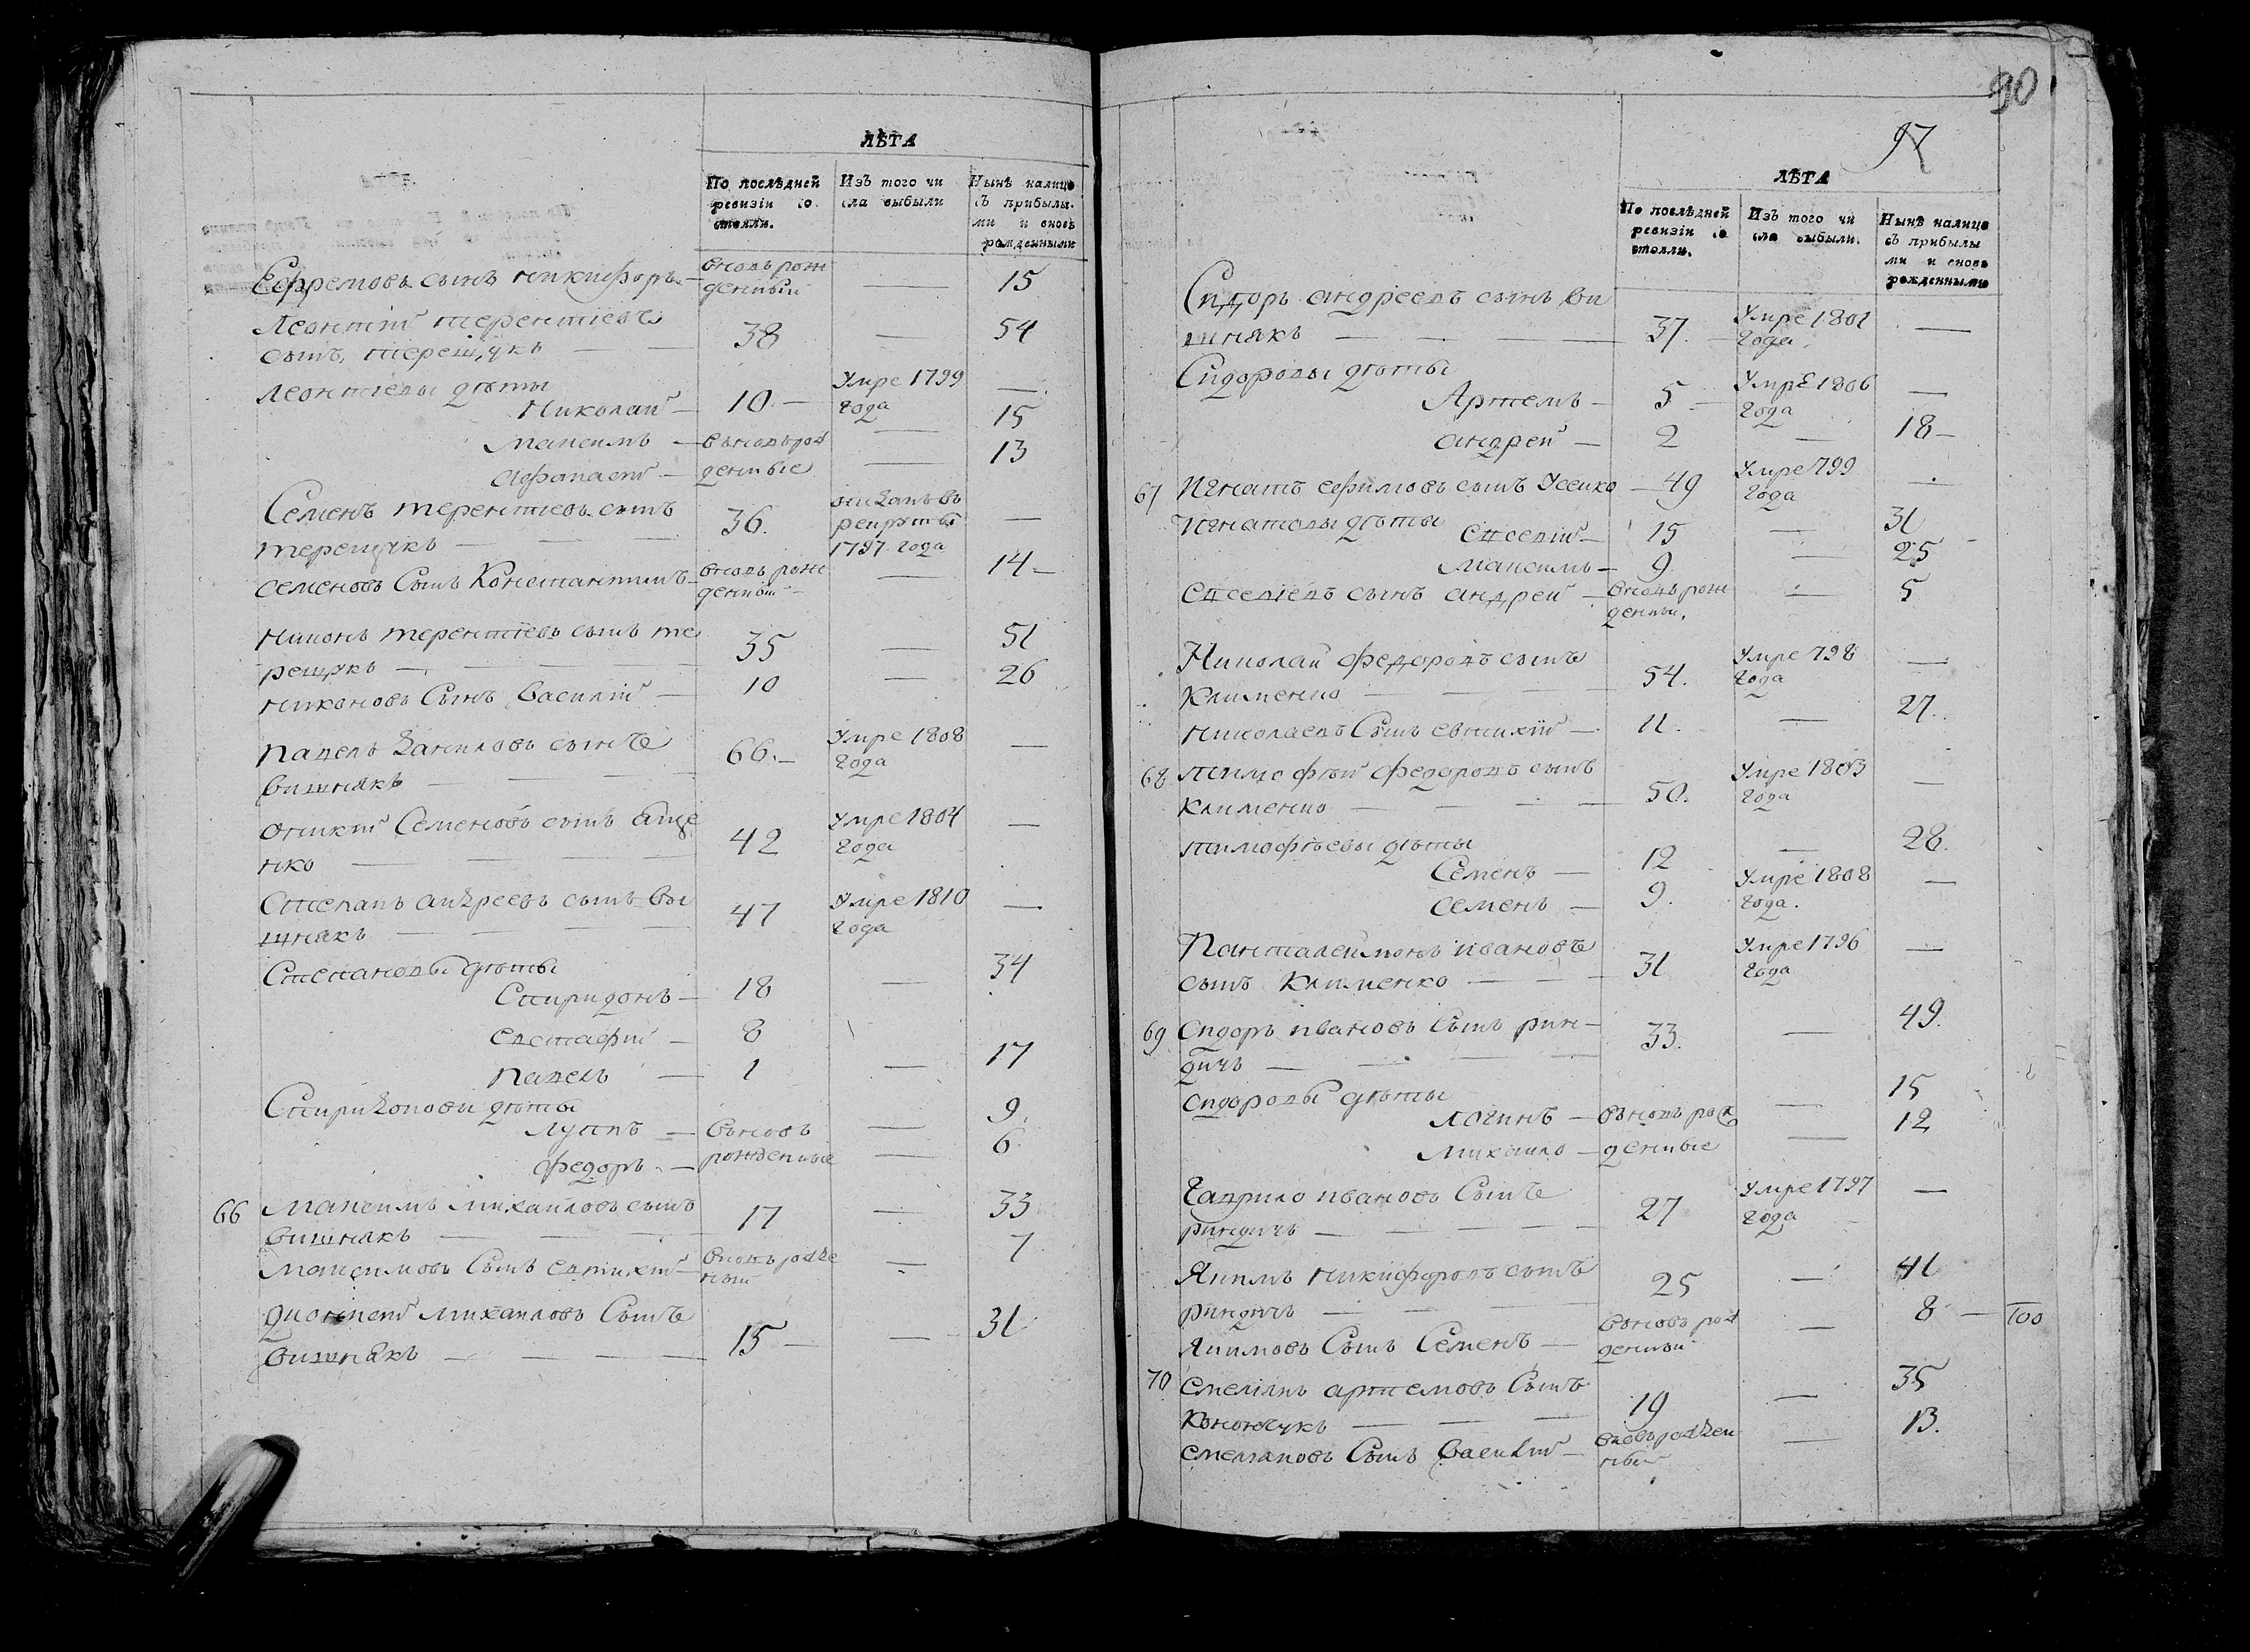 ЛѢТА
По послѣдней ревизіи со стояли.
Изъ того чи сла выбыли
Нынѣ налицо съ прибылы ми и вновь рожденными
Ефремовъ сынъ никифоръ — вновь рож денный — 15
Леонтій терентіевъ
сынъ терещукъ — 38 — 54
Леонтіевы дѣты
Николай — 10 — Умре 1799 года —
максимъ — вьновь рож — 15
денные — 13
Семенъ терентіевъ сынъ
терещукъ — 36. въ рекруты 1797 года —
семеновъ Сынъ Константинъ — вновь рож денный — 14 —
никонъ терентіевъ сынъ те
рещукъ — 35 — 51
никоновъ Сынъ василій — 10 — 26
павелъ даниловъ сынъ
вишнякъ — 66. — Умре 1808 года —
Семеновъ сынъ
нко — 42 Умре 1804 года —
Степанъ андреевъ сынъ ви
шнякъ — 47 Умре 1810 года —
Степановы дѣты
Спиридонъ — 18 — 34
евстафій — 8
павелъ — 1 — 17
Спиридоновы дѣты
лупъ — вьновь — 9.
федоръ — рожденные — 6
66 максимъ михайловъ сынъ
вишнякъ — 17 — 33
максимовъ Сынъ евтихій — вновь рожде ный — 7
михайловъ Сынъ
вишнякъ — 15 — 31
90
97
ЛѢТА
По послѣдней ревизіи со стояли.
Изъ того чи сла выбыли.
Нынѣ налицо съ прибылы ми и вновь рожденными
Сидоръ андреевъ сынъ ви
шнякъ — 37. Умре 1801 года. —
Сидоровы дѣты
Артемъ — 5 — Умре 1806 года —
андрей — 2 — 18 —
67 Игнатъ ефимовъ сынъ Усенко — 49 Умре 799 года —
Игнатовы дѣты
евсевій — 15 — 31
максимъ — 9. — 25
евсевіевъ сынъ андрей — вновь рож денный. — 5
Николай федоровъ сынъ
Клименко — 54. Умре 798 года —
николаевъ Сынъ евтихій — 11. — 27.
68 тимофѣй федоровъ сынъ
Клименко — 50. Умре 1803 года —
тимофѣевы дѣты
Семенъ — 12 — 28.
семенъ — 9. Умре 1808 года. —
Панталеймонъ ивановъ
сынъ Клименко — 31 Умре 1796 года —
69 Сидоръ ивановъ Сынъ рин-
дичъ — 33. — 49.
сидоровы дѣты
логинъ — вьновь рож — 15
михайло — денные — 12
гаврило ивановъ Сынъ
риндичъ — 27 Умре 1797 года —
Якимъ никифоровъ сынъ
риндичъ — 25 — 41
Якимовъ Сынъ Семенъ — вьновь рож денный — 8 —
70 емеліянъ артемовъ Сынъ
Конончукъ — 19 — 35
емеліяновъ Сынъ василій — вновь рожден ный — 13.